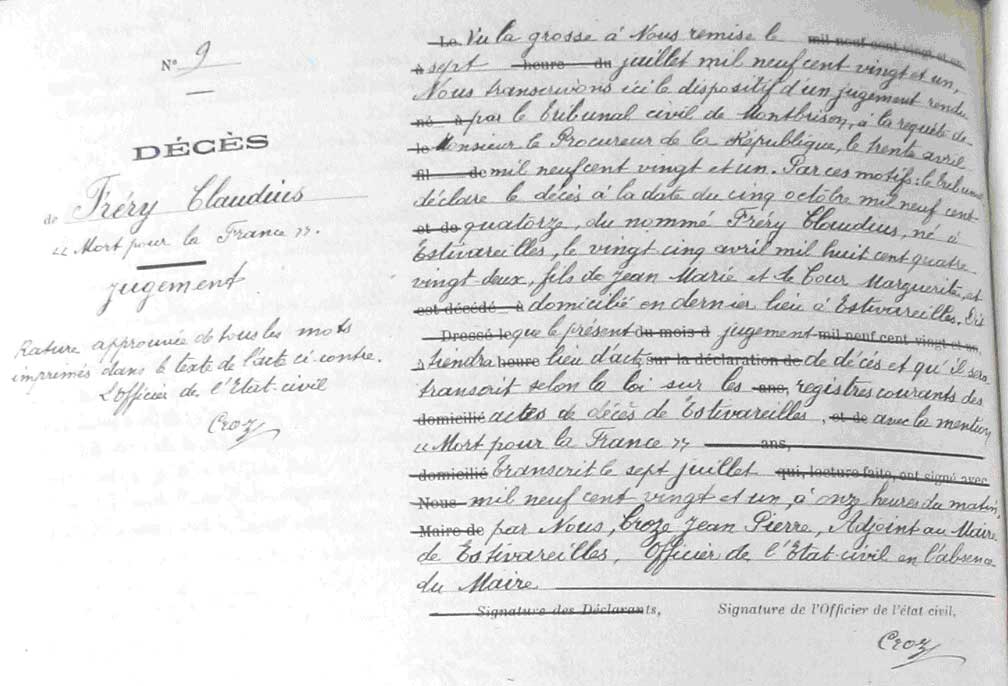 N° 9
DÉCÈS
de Fréry Claudius
« Mort pour la France ».
Jugement
Rature approuvée de tous les mots
imprimés dans le texte de l'acte ci-contre.
L'officier de l'Etat civil
Croz
Le Vu la grosse à Nous remise le mil neuf cent vingt et un
à sept heure du juillet mil neuf cent vingt et un,
Nous transcrivons ici le dispositif d'un jugement rendu
né à par le Tribunal civil de Montbrison, à la requête de
le Monsieur le Procureur de la République, le trente avril
fil de mil neuf cent vingt et un. Par ces motifs: le Tribunal
déclare le décès à la date du cinq octobre mil neuf cent
et de quatorze, du nommé Fréry Claudius, né à
Estivareilles, le vingt cinq avril mil huit cent quatre
vingt deux, fils de Jean Marie et de Cour Marguerite, et
est décédé à domicilié en dernier lieu à Estivareilles. Dit
Dressé le que le présent du mois d jugement mil neuf cent vingt et un
à tiendra heure lieu d'acte sur la déclaration de de décès et qu'il sera
transcrit selon la loi sur les ans, registres courants des
domicilié actes de décès de Estivareilles, et de avec la mention
« Mort pour la France » ans,
domicilié Transcrit le sept juillet qui, lecture faite, ont signé avec
Nous mil neuf cent vingt et un, à onze heures du matin,
Maire de par Nous, Croze Jean Pierre, Adjoint au Maire
de Estivareilles, Officier de l'Etat civil en l'absence
du Maire
Signature des Déclarants, Signature de l'Officier de l'état civil,
Croz